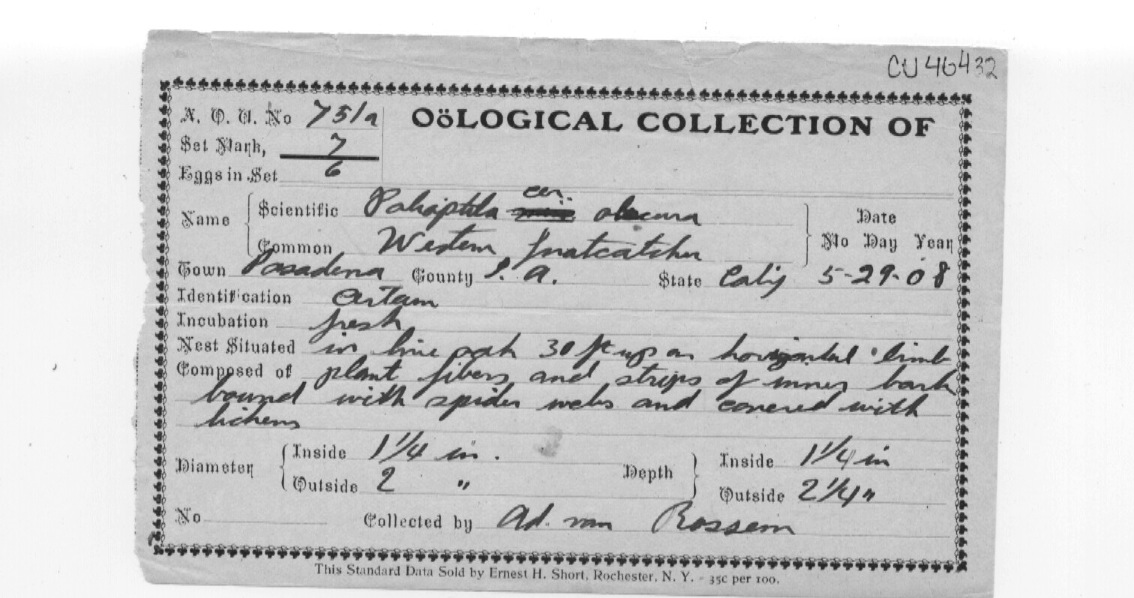 CU 46432
A. O. U. No 751a
OöLOGICAL COLLECTION OF
Set Mark, 7
Eggs in Set 6
Name Scientific Polioptila cer. obscura
Common Western Gnatcatcher
Date
Mo Day Year
Town Pasadena County L. A. State Calif 5-29-08
Identification Certain
Incubation fresh
Nest Situated in live oak 30 ft up on horizontal limb
Composed of plant fibers and strips of inner bark
bound with spider webs and covered with
lichens
Diameter Inside 1 1/4 in. Depth Inside 1 1/4 in
Outside 2 " Outside 2 1/4 "
No Collected by Ad. van Rossem
This Standard Data Sold by Ernest H. Short, Rochester, N. Y. - 35c per 100.